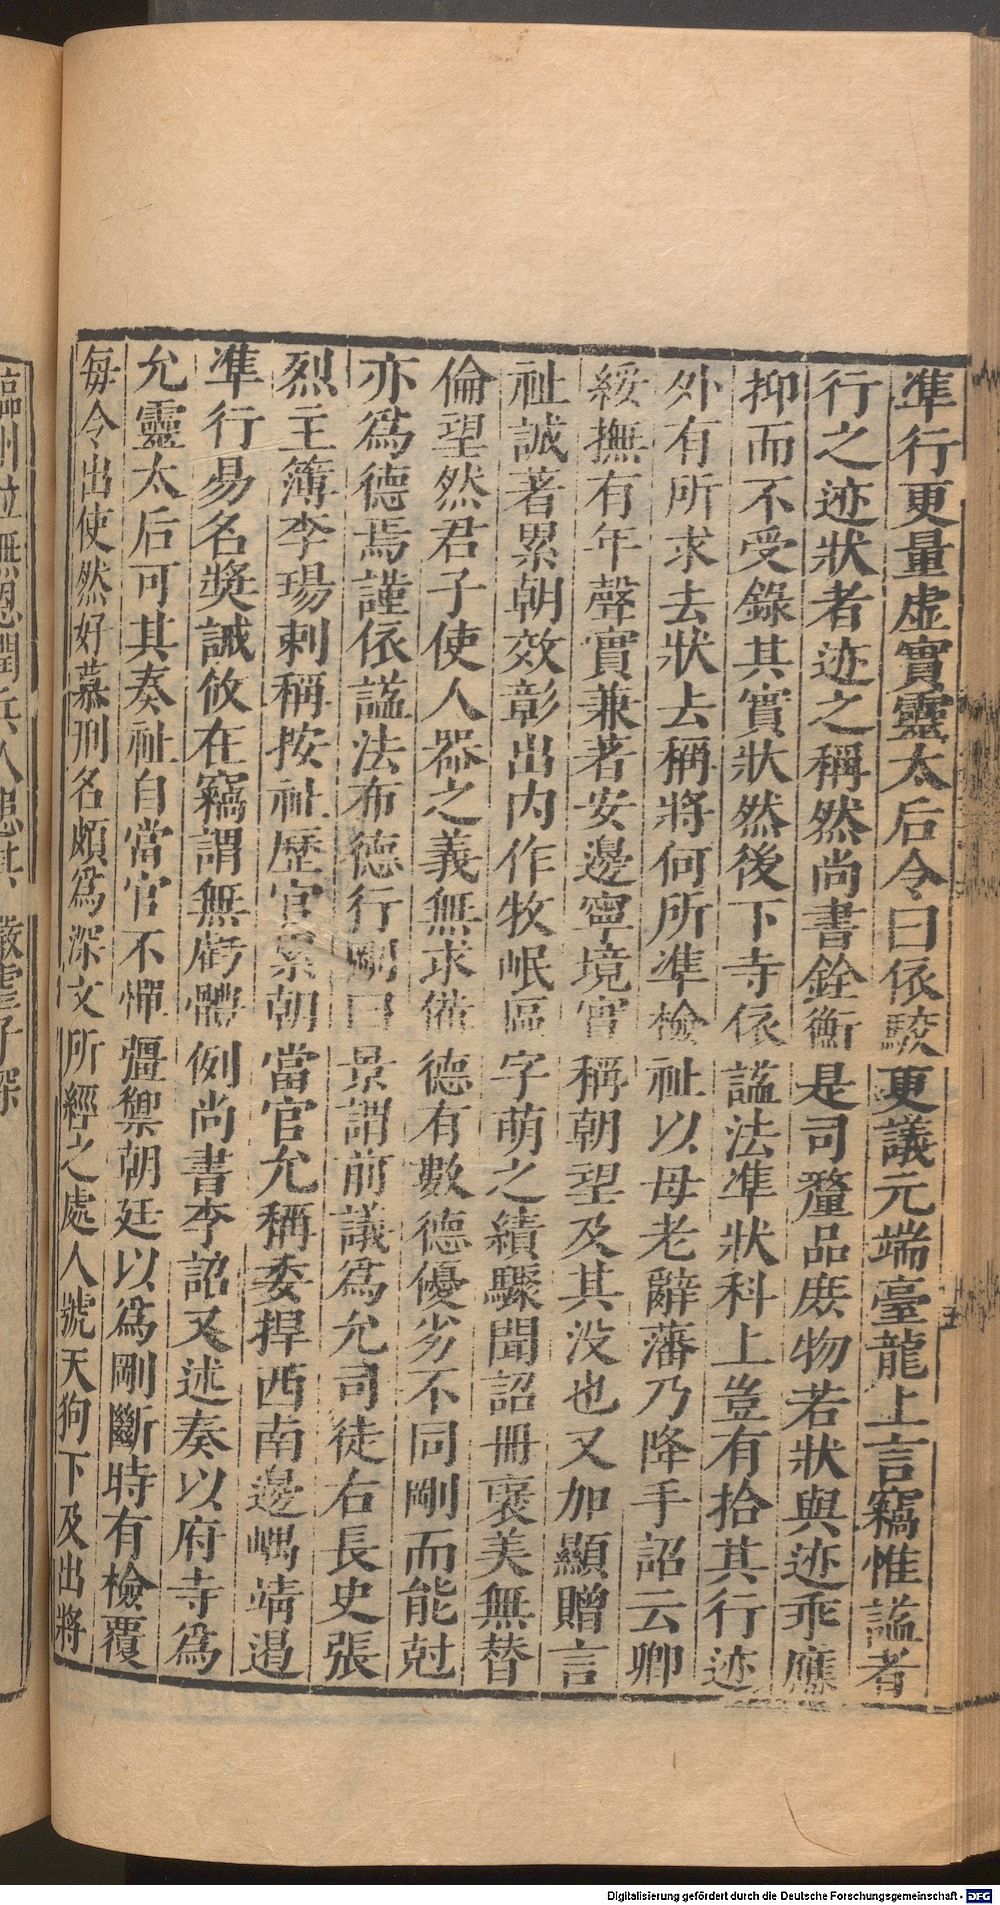 準行更量虛實靈太后令曰依駮更議元端臺龍上言竊惟謚者
行之迹狀者迹之稱然尚書銓衡是司釐品庶物若狀與迹乖應
抑而不受錄其實狀然後下寺依謚法準狀科上豈有拾其行迹
外有所求去狀去稱將何所準檢祉以母老辭藩乃降手詔云卿
綏撫有年聲實兼著安邊寧境實稱朝望及其没也又加顯贈言
祉誠著累朝效彰出内作牧岷區字萌之績驟聞詔冊褒美無替
倫望然君子使人器之義無求備德有數德優劣不同剛而能尅
亦爲德焉謹依謚法布德行剛曰景謂前議爲允司徒右長史張
烈主簿李瑒刺稱按祉歷官累朝當官允稱委捍西南邊嵎靖遏
準行易名獎誡攸在竊謂無虧體例尚書李詔又述奏以府寺爲
允靈太后可其奏祉自當官不憚彊禦朝廷以爲剛斷時有檢覆
每令出使然好慕刑名頗爲深文所經之處人號天狗下及出將
臨州並無恩潤兵人患其嚴虐子深
Digitalisierung gefördert durch die Deutsche Forschungsgemeinschaft - DFG